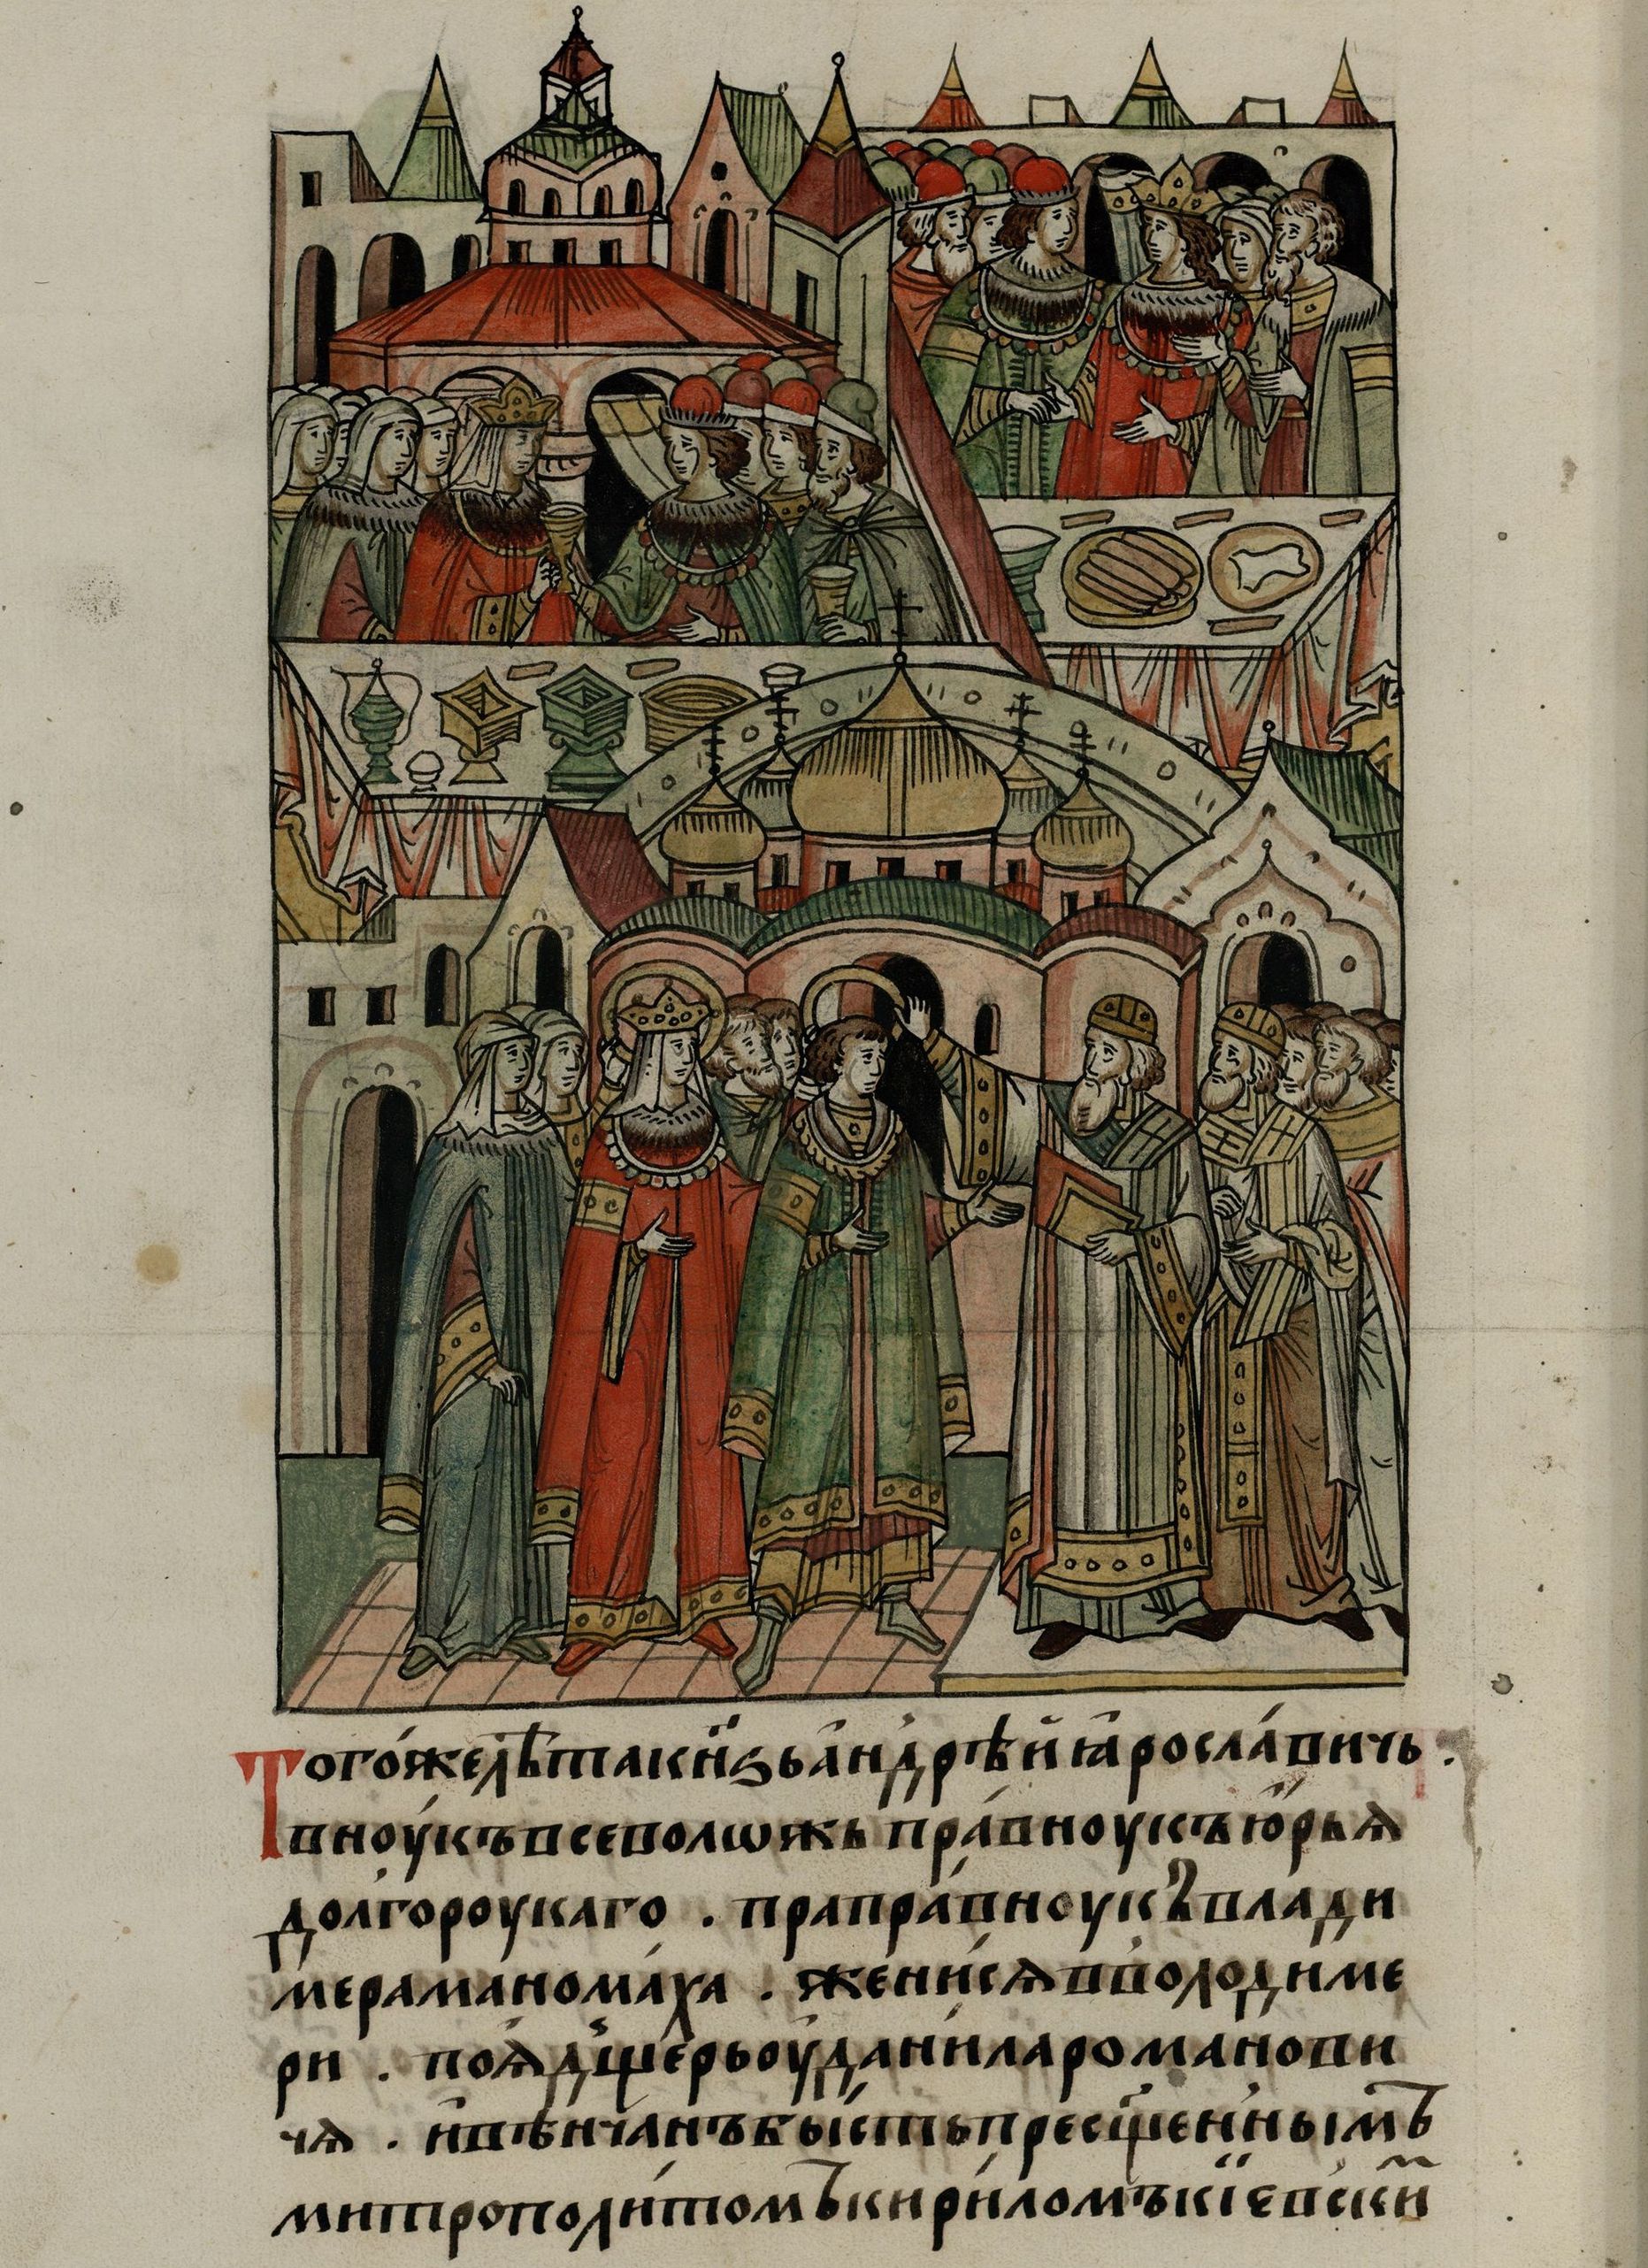 Того́желѣ́такн҃зьа҆ндрѣ́йꙗ҆росла́вичь .
внꙋ́къвсеволѡжь пра́вноукъю҆́рьꙗ
до́лгороукаго . прапра́вноукъвлади
мераманома́ха . жени́сѧвволоди́ме
ри . поѧ҆дще́рьоу҆дани́лароманови
чѧ . и҆вѣнча́нъбы́стьпресщ҃е́ннымъ
митрополи́томъкири́ломъкїевски